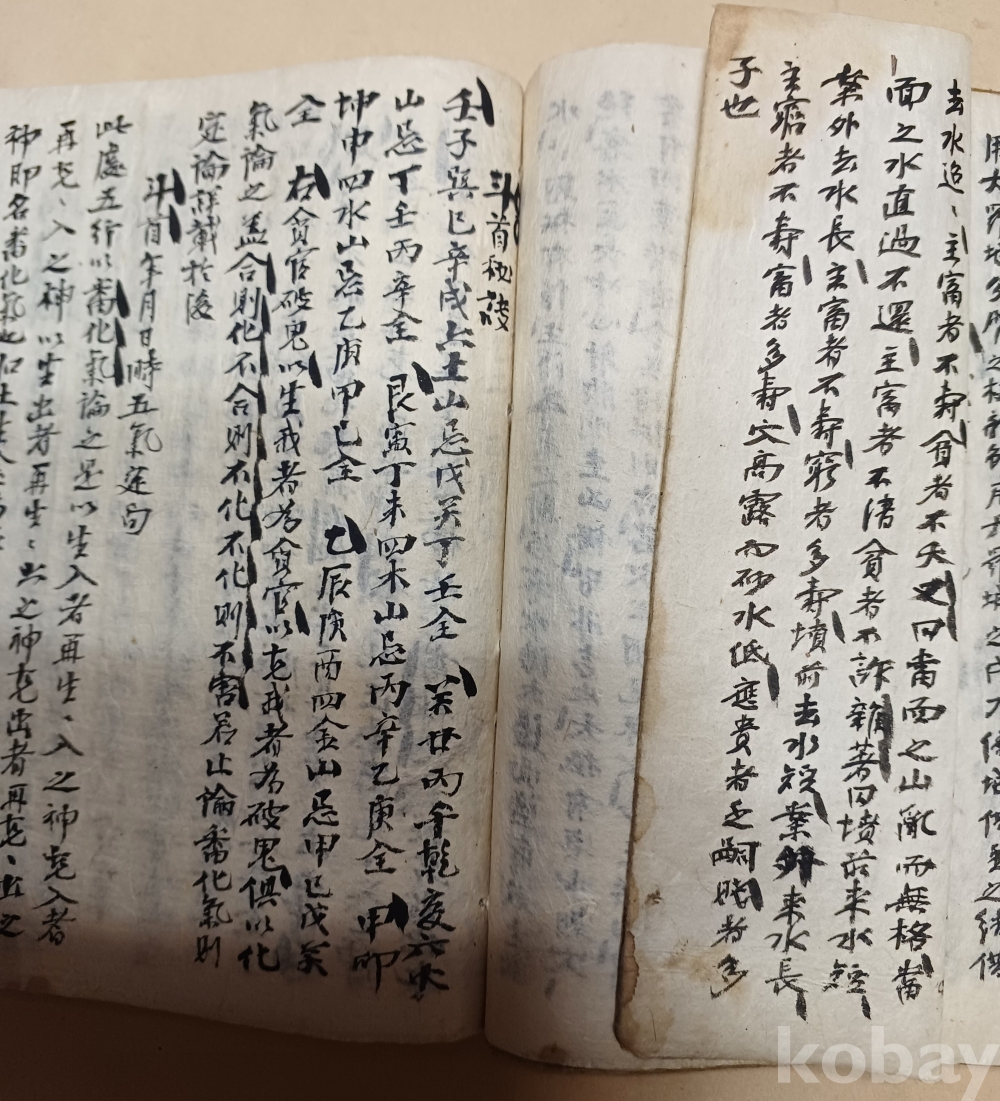 去水迢〻主富者不壽貧者不夭又曰當面之山亂而無格當
面之水直過不還主富者不清貧者不詐雜著曰墳前來水短
案外去水長主富者不壽窮者多壽墳前去水短案外來水長
主窮者不壽富者多壽穴高露而砂水低應貴者乏嗣賤者多
子也
斗首秘訣
壬子巽巳辛戌六土山忌戊癸丁壬全 癸丑丙午乾亥六火
山忌丁壬丙辛全 艮寅丁未四木山忌丙辛乙庚全 甲卯
坤申四水山忌乙庚甲己全 乙辰庚酉四金山忌甲己戊癸
全
右貪官破鬼以生我者為貪官以克我者為破鬼俱以化
氣論之盖合則化不合則不化不化則不害若止論舊化氣則
定論詳載於后
斗首年月日時五氣定局
此處五行以舊化氣論之是以生入者再生〻入之神克入者
再克〻入之神以生出者再生〻出之神克出者再克〻出之
神即名舊化氣也
kobay